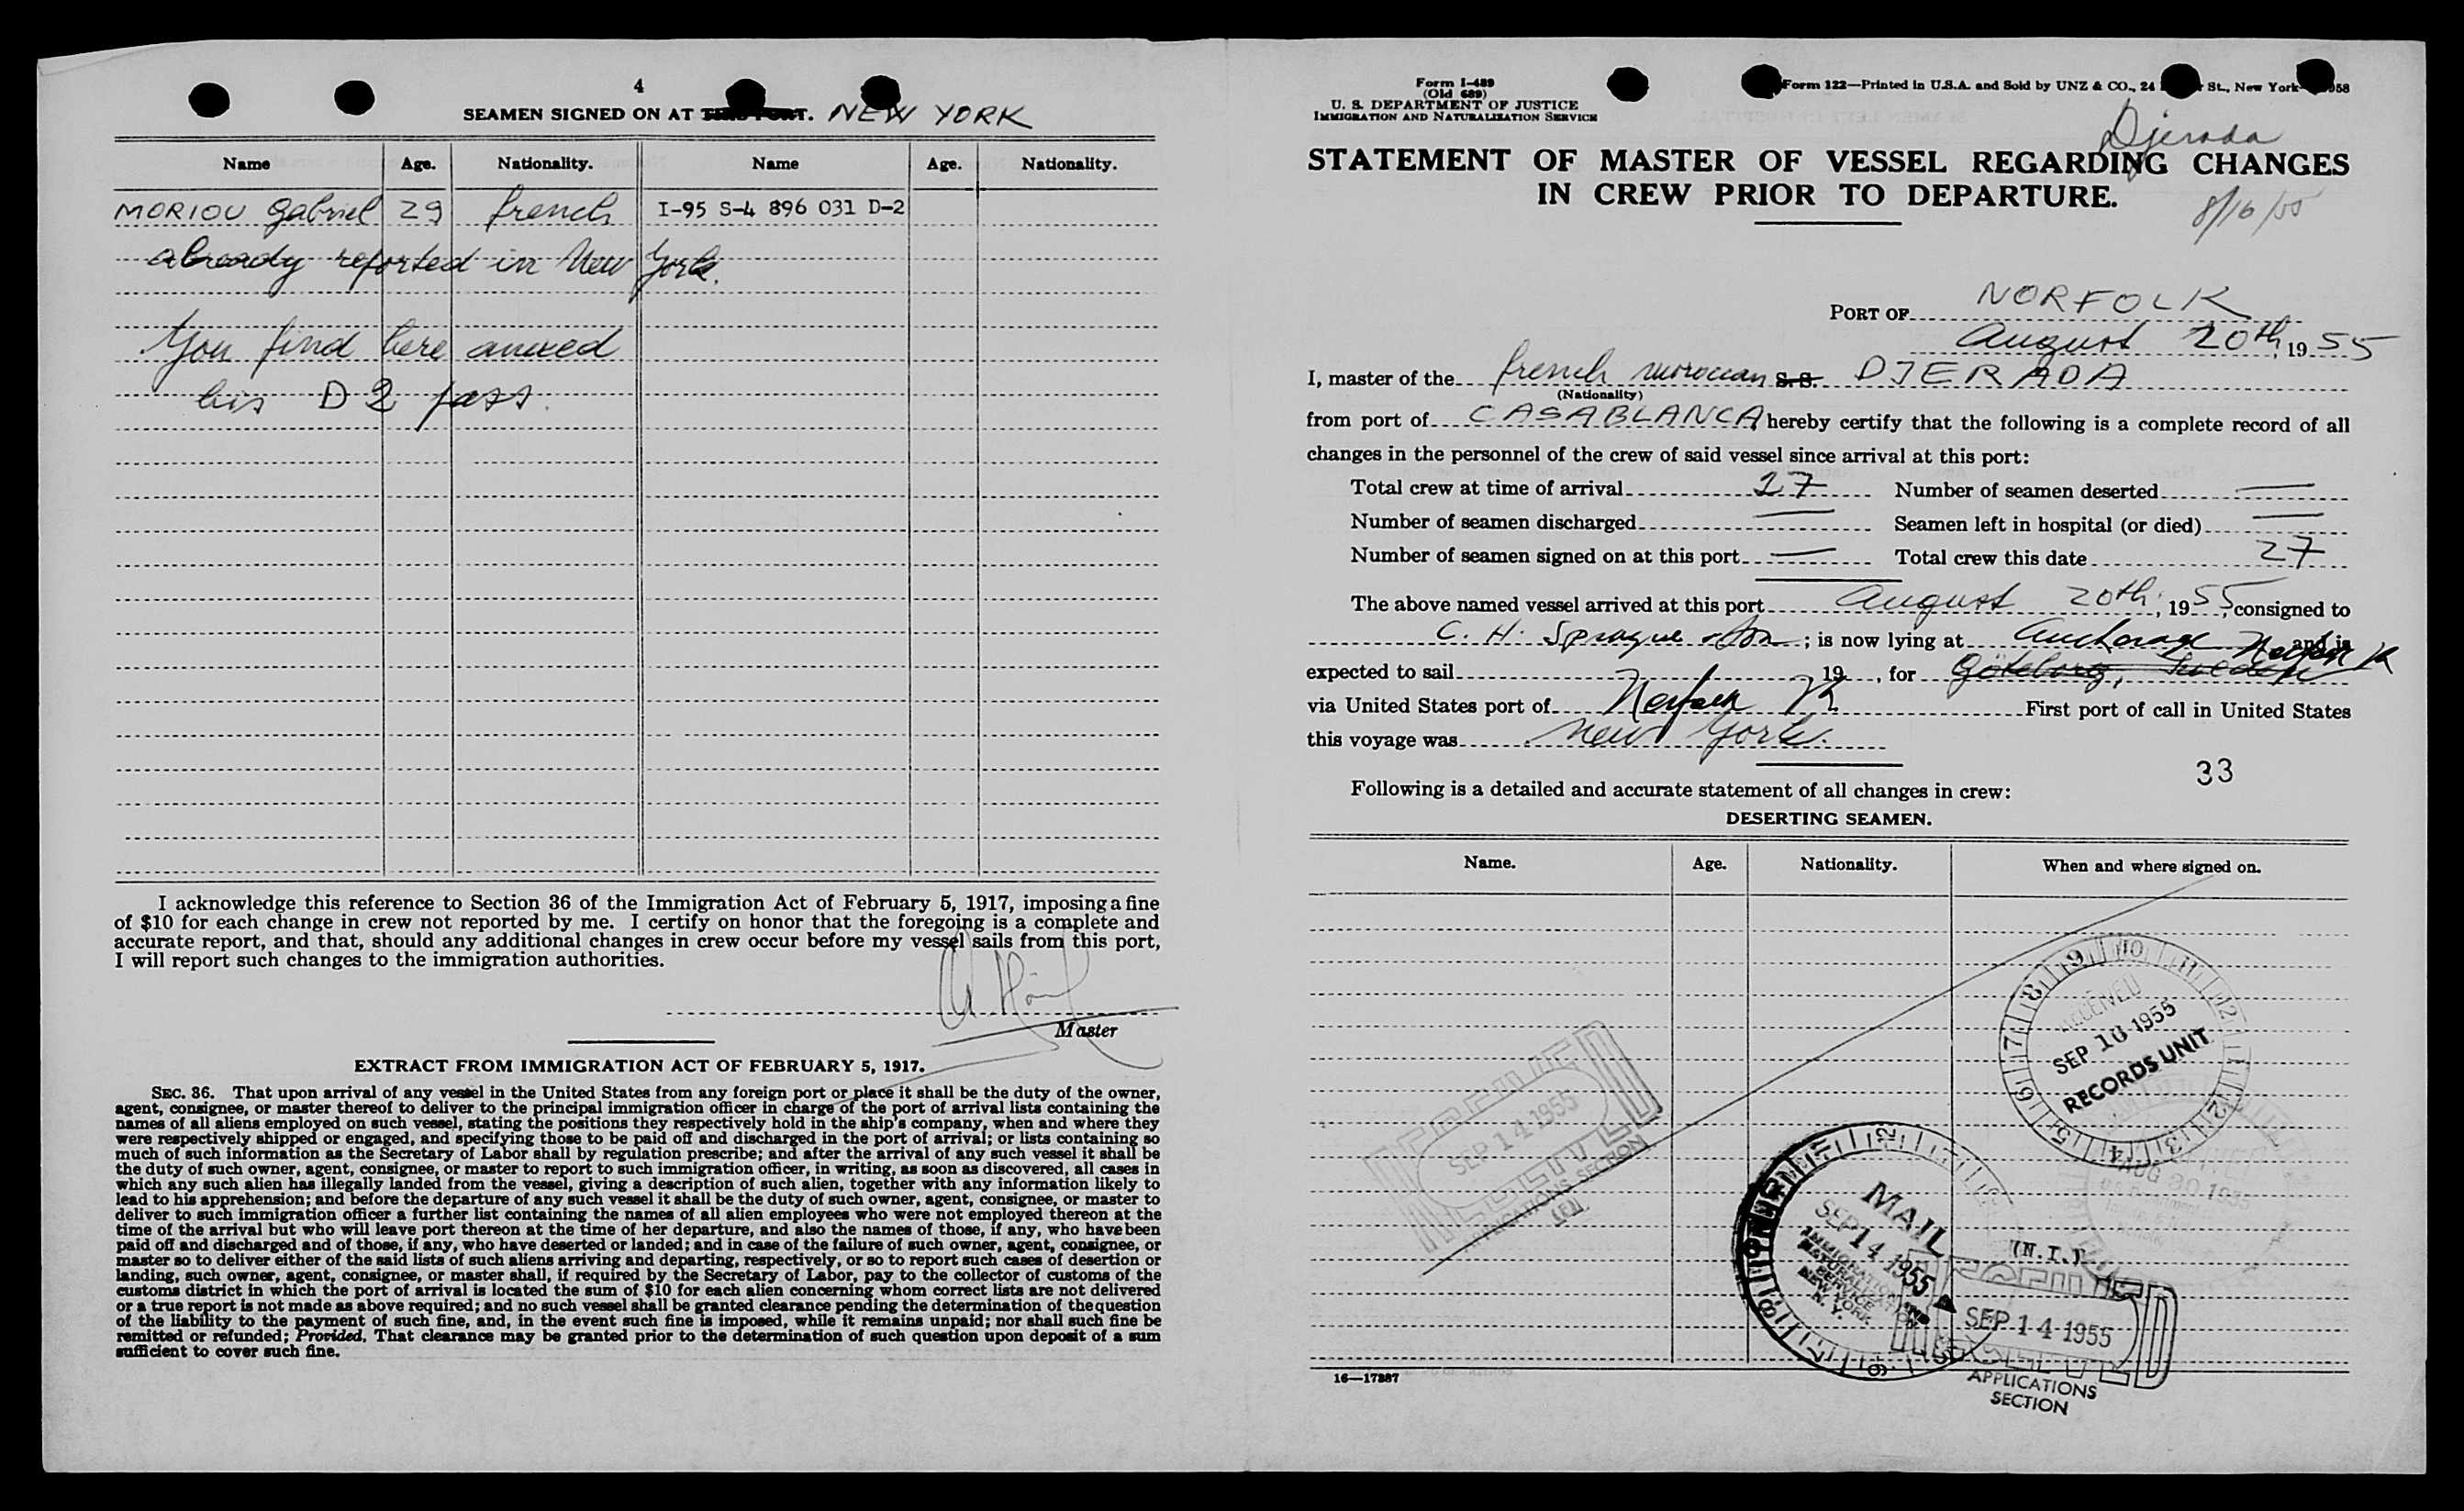 4
SEAMEN SIGNED ON AT THIS PORT. NEW YORK
Name Age. Nationality. Name Age. Nationality.
MORIOU Gabriel 29 french I-95 S-4 896 031 D-2
already reported in New York.
You find here anexed
his D 2 pass.
I acknowledge this reference to Section 36 of the Immigration Act of February 5, 1917, imposing a fine
of $10 for each change in crew not reported by me. I certify on honor that the foregoing is a complete and
accurate report, and that, should any additional changes in crew occur before my vessel sails from this port,
I will report such changes to the immigration authorities.
Master
EXTRACT FROM IMMIGRATION ACT OF FEBRUARY 5, 1917.
SEC. 36. That upon arrival of any vessel in the United States from any foreign port or place it shall be the duty of the owner,
agent, consignee, or master thereof to deliver to the principal immigration officer in charge of the port of arrival lists containing the
names of all aliens employed on such vessel, stating the positions they respectively hold in the ship's company, when and where they
were respectively shipped or engaged, and specifying those to be paid off and discharged in the port of arrival; or lists containing so
much of such information as the Secretary of Labor shall by regulation prescribe; and after the arrival of any such vessel it shall be
the duty of such owner, agent, consignee, or master to report to such immigration officer, in writing, as soon as discovered, all cases in
which any such alien has illegally landed from the vessel, giving a description of such alien, together with any information likely to
lead to his apprehension; and before the departure of any such vessel it shall be the duty of such owner, agent, consignee, or master to
deliver to such immigration officer a further list containing the names of all alien employees who were not employed thereon at the
time of the arrival but who will leave port thereon at the time of her departure, and also the names of those, if any, who have been
paid off and discharged and of those, if any, who have deserted or landed; and in case of the failure of such owner, agent, consignee, or
master so to deliver either of the said lists of such aliens arriving and departing, respectively, or so to report such cases of desertion or
landing, such owner, agent, consignee, or master shall, if required by the Secretary of Labor, pay to the collector of customs of the
customs district in which the port of arrival is located the sum of $10 for each alien concerning whom correct lists are not delivered
or a true report is not made as above required; and no such vessel shall be granted clearance pending the determination of the question
of the liability to the payment of such fine, and, in the event such fine is imposed, while it remains unpaid; nor shall such fine be
remitted or refunded; Provided, That clearance may be granted prior to the determination of such question upon deposit of a sum
sufficient to cover such fine.
Form I-489
(Old 689)
U. S. DEPARTMENT OF JUSTICE
IMMIGRATION AND NATURALIZATION SERVICE
Form 122—Printed in U.S.A. and Sold by UNZ & CO., 24 St., New York
Djerada
STATEMENT OF MASTER OF VESSEL REGARDING CHANGES
IN CREW PRIOR TO DEPARTURE.
8/16/55
PORT OF NORFOLK
August 20th, 1955
I, master of the french moroccan S.S. DJERADA
(Nationality)
from port of CASABLANCA, hereby certify that the following is a complete record of all
changes in the personnel of the crew of said vessel since arrival at this port:
Total crew at time of arrival 27 Number of seamen deserted —
Number of seamen discharged — Seamen left in hospital (or died) —
Number of seamen signed on at this port — Total crew this date 27
The above named vessel arrived at this port August 20th, 1955, consigned to
C. H. Sprague & Son; is now lying at anchorage Norfolk and is
expected to sail 19 , for Göteborg, Sweden
via United States port of Norfolk First port of call in United States
this voyage was New York.
33
Following is a detailed and accurate statement of all changes in crew:
DESERTING SEAMEN.
Name. Age. Nationality. When and where signed on.
RECEIVED
SEP 10 1955
RECORDS UNIT
SEP 14 1955
MAIL
SEP 14 1955
IMMIGRATION AND
NATURALIZATION
SERVICE
NEW YORK,
N. Y.
(N.I.)
SEP 14 1955
APPLICATIONS
SECTION
16—17887